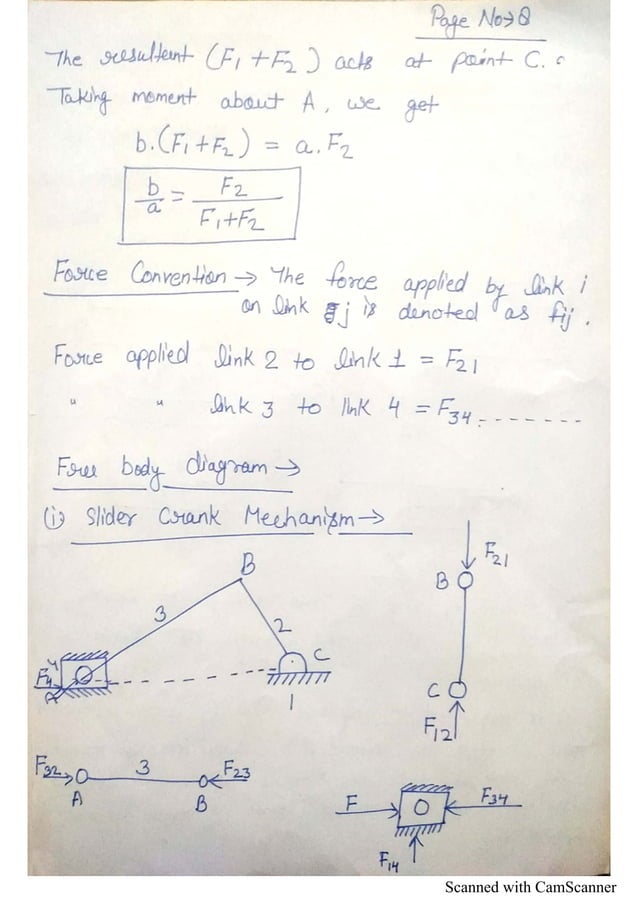 Page No→8
The resultent (F₁ + F₂) acts at point C.
Taking moment about A, we get
b.(F₁+F₂) = a.F₂
b/a = F₂/(F₁+F₂)
Force Convention → The force applied by link i
on link j is denoted as fij.
Force applied link 2 to link 1 = F₂₁
" " link 3 to link 4 = F₃₄ - - - - - - -
Free body diagram →
(i) Slider Crank Mechanism →
B
3
2
4
F₄
A
C
1
F₂₁
B
C
F₁₂
F₃₂
3
F₂₃
A
B
F
F₃₄
F₁₄
Scanned with CamScanner